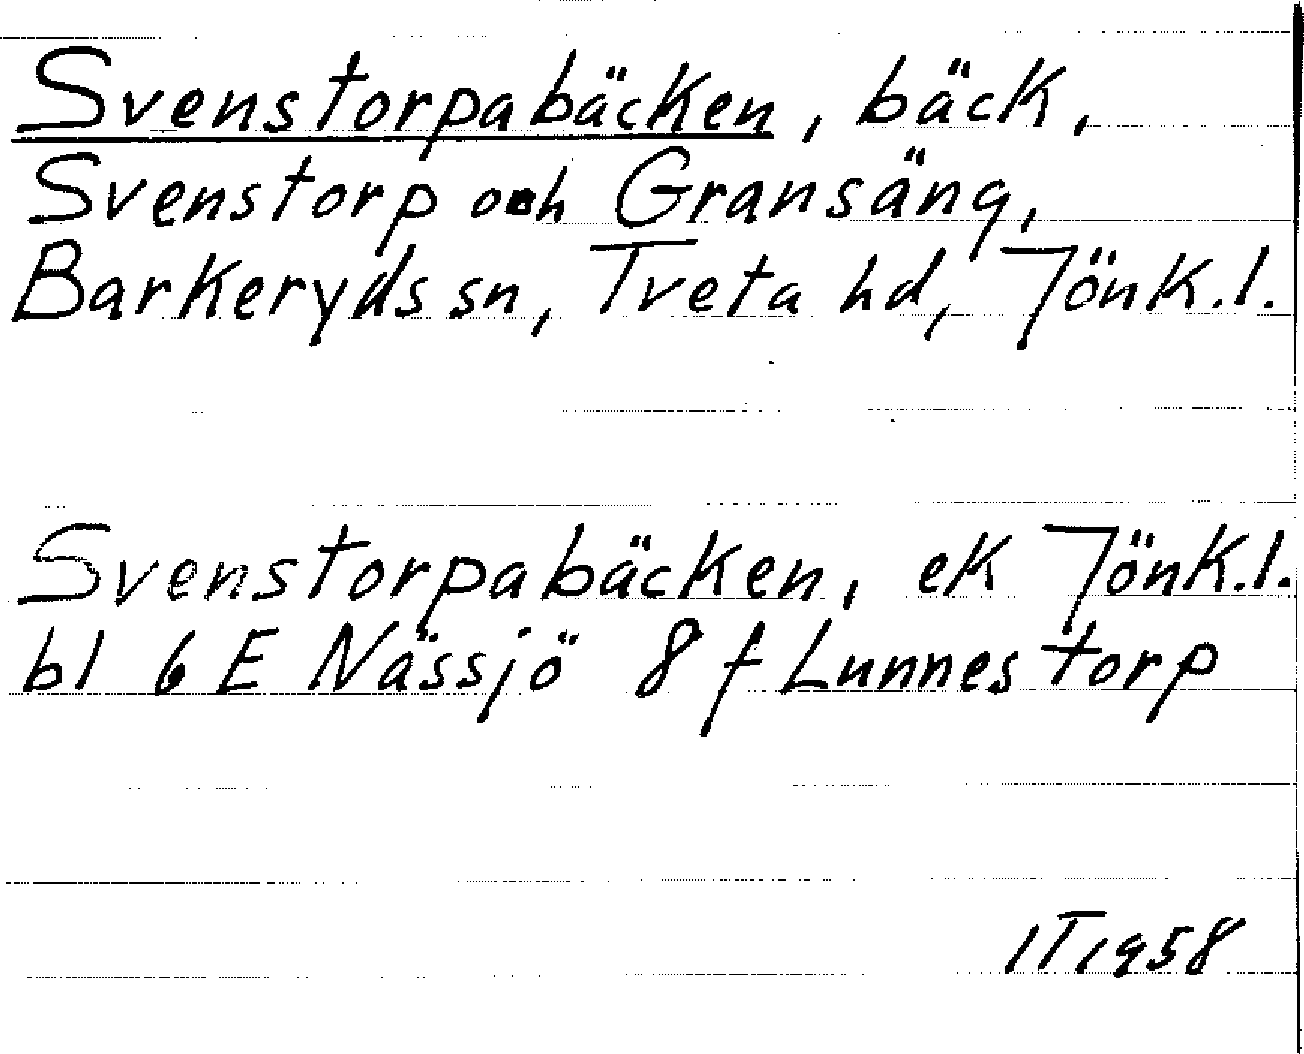 Svenstorpabäcken, bäck,
Svenstorp och Gransäng,
Barkeryds sn, Tveta hd, Jönk.l.
Svenstorpabäcken, ek Jönk.l.
bl 6 E Nässjö 8 f Lunnestorp
IT 1958